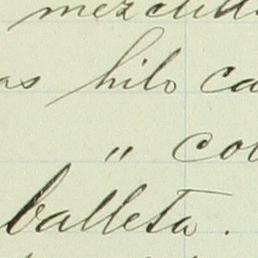 mezclill
as hilo ca
" col
balleta.